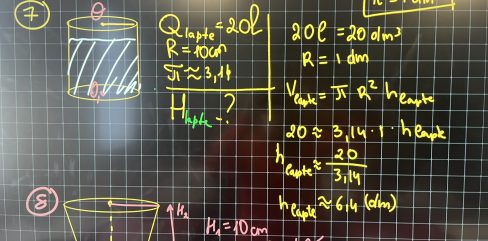 7
O
Q lapte = 20l
R = 10 cm
π ≈ 3,14
H lapte - ?
20l = 20 dm³
R = 1 dm
V lapte = π R² h lapte
20 ≈ 3,14 · 1 · h lapte
h lapte ≈ 20 / 3,14
h lapte ≈ 6,4 (dm)
8
H₂
H₁ = 10 cm